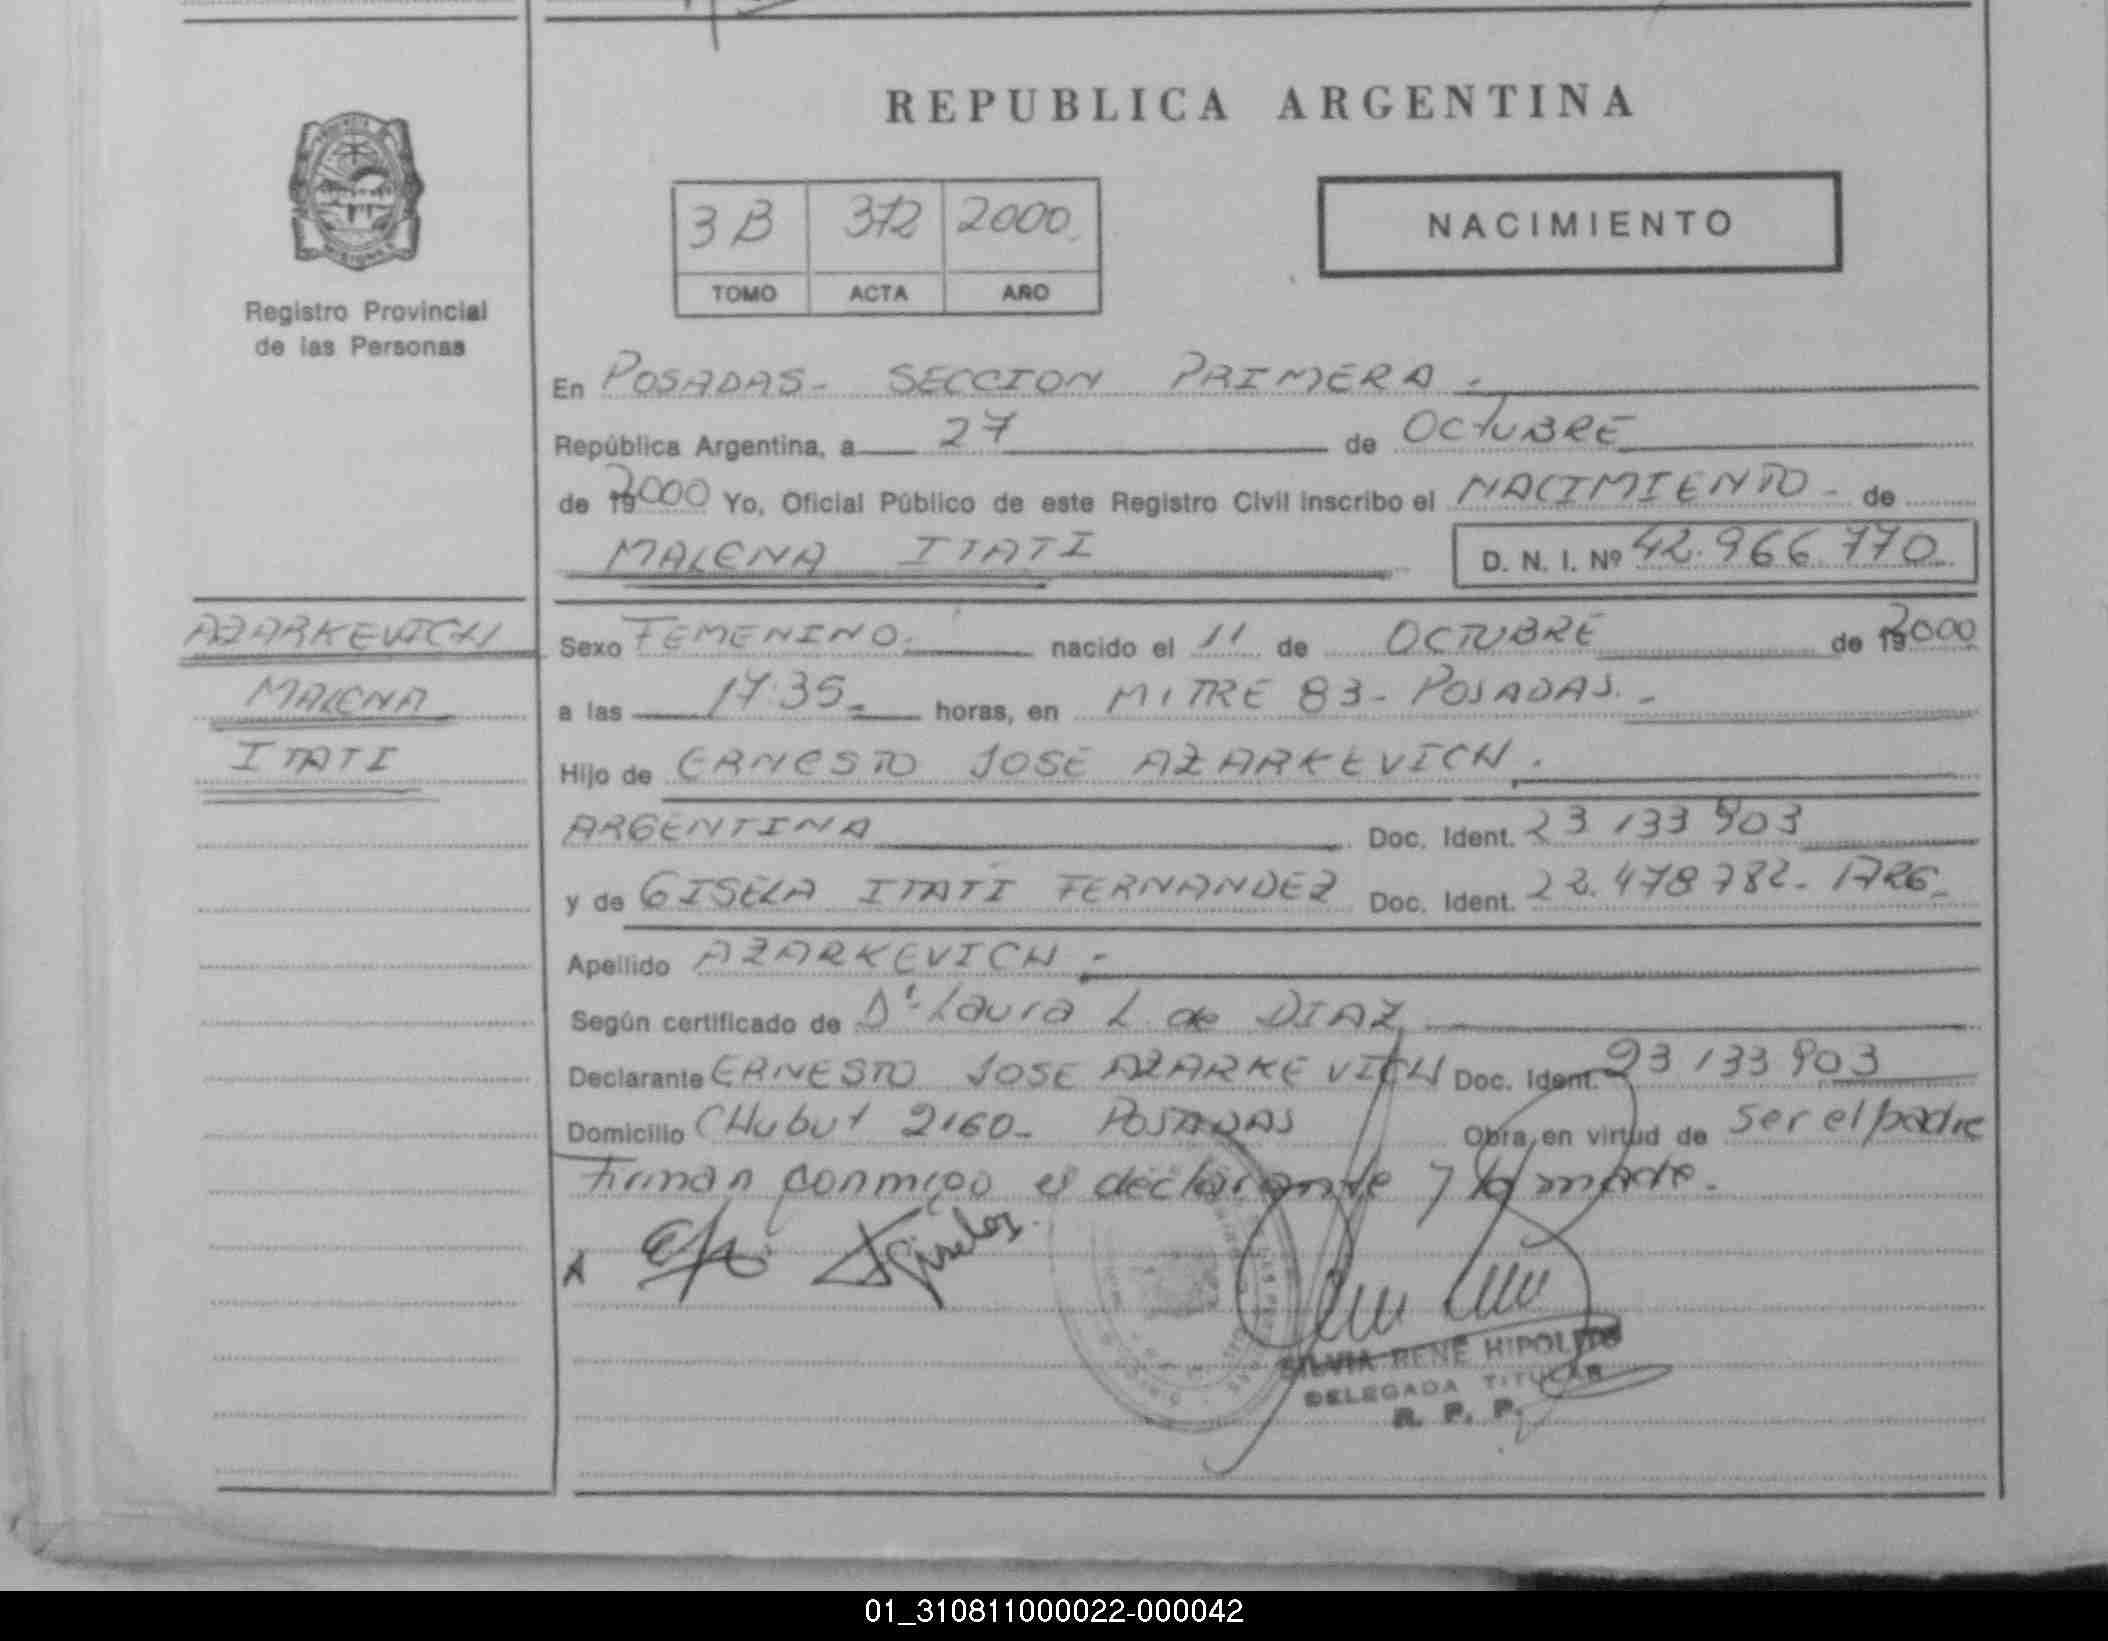 REPUBLICA ARGENTINA
NACIMIENTO
3 B 372 2000
TOMO ACTA AÑO
Registro Provincial
de las Personas
En POSADAS- SECCION PRIMERA.
República Argentina, a 27 de OCTUBRE
de 2000 Yo, Oficial Público de este Registro Civil inscribo el NACIMIENTO - de
MALENA ITATI D. N. I. Nº 42.966.770
AZARKEVICH
MALENA
ITATI
Sexo FEMENINO. nacido el 11 de OCTUBRE de 2000
a las 17.35 horas, en MITRE 83- POSADAS.-
Hijo de ERNESTO JOSE AZARKEVICH.
ARGENTINA Doc. Ident. 23 133 903
y de GISELA ITATI FERNANDEZ Doc. Ident. 22.478 782- ARG-
Apellido AZARKEVICH -
Según certificado de Dr Laura L. de DIAZ
Declarante ERNESTO JOSE AZARKEVICH Doc. Ident. 23 133 903
Domicilio CHubut 2160- POSADAS Obra en virtud de ser el padre
Firman conmigo el declarante y la madre.
SILVIA RENE HIPOLITO
DELEGADA TITULAR
R. P. P.
01_310811000022-000042